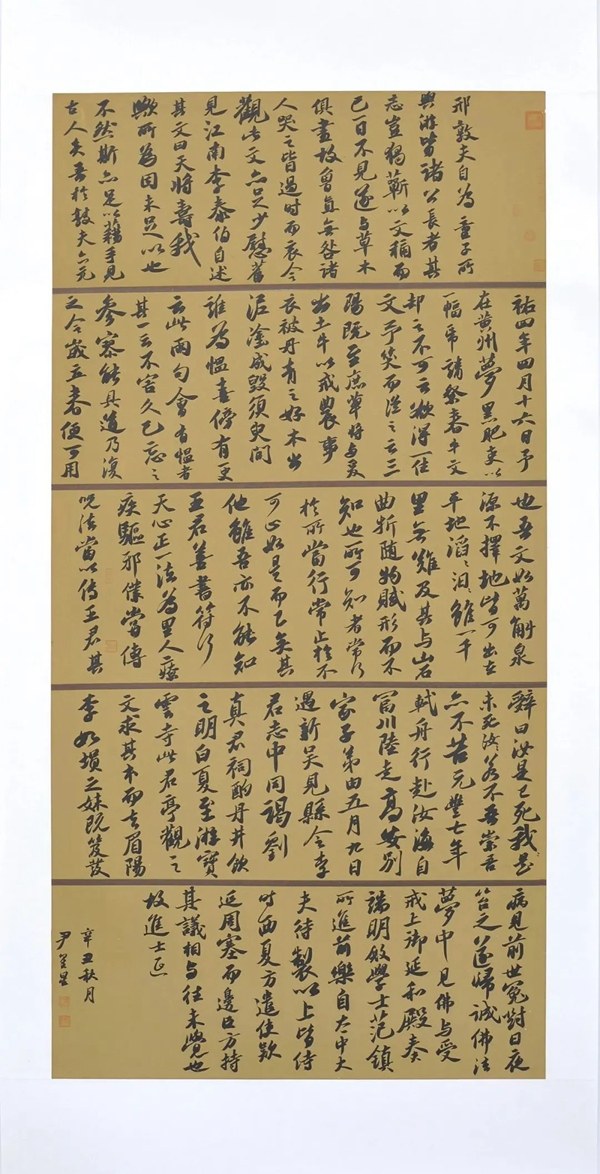 邢敦夫自為童子所
與游皆諸公長者其
志豈獨蘄以文稱而
已一日不見遂與草木
俱盡故魯直無咎諸
人哭之皆過時而哀今
觀此文亦足少慰舊
見江南李泰伯自述
其文曰天將壽我
歟所為因未足以也
不然斯亦足以藉手見
古人矣吾於敦夫亦元
祐四年四月十六日予
在黃州夢黑肥吏以
一幅紙請祭春牛文
却之不可云欲得一佳
文予笑而從之云三
陽既至庶草將興爰
出土牛以戒農事
衣被丹青之好本出
泥塗成毀須臾間
誰為慍喜傍有吏
云此兩句會有慍者
其一云不害久已忘之
參寥能具道乃復
之今歲立春便可用
也吾文如萬斛泉
源不擇地皆可出在
平地滔滔汩雖一千
里無難及其與山石
曲折隨物賦形而不
知也所可知者常行
於所當行常止於不
可止如是而已矣其
他雖吾亦不能知
王君善書符行
天心正一法為里人療
疾驅邪僕當傳
咒法當以傳王君其
辭曰汝是已死我我是
未死汝汝若不吾祟吾
亦不苦元豐七年
軾舟行赴汝海自
富川陸走高安別
家子弟由五月九日
過新吳見縣令李
君志中同謁劉
真君祠酌丹井飲
之明白夏至游寶
雲寺此君亭觀之
文求其本而去眉陽
李如塤之妹既笄發
病見前世冤對日夜
笞之遂歸誠佛法
夢中見佛與受
戒上御延和殿奏
端明殿學士范鎮
所進前樂自太中大
夫待製以上皆侍
時西夏方遣使款
延周塞而邊臣方持
其議相與往來覺也
故進士正
辛丑秋月